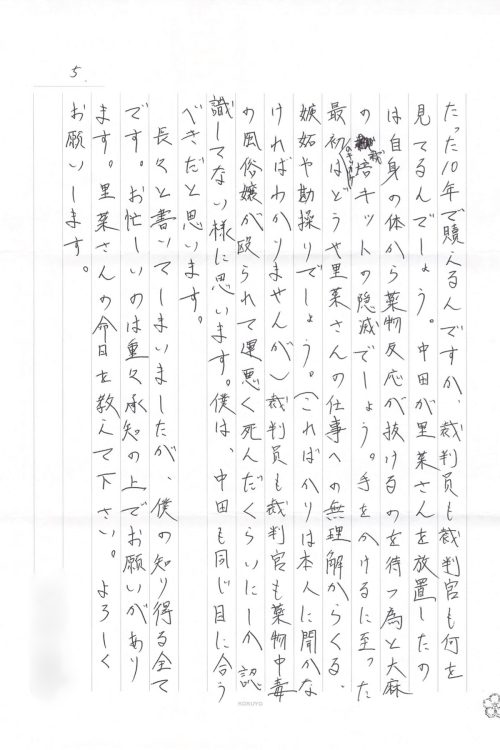 5.
たった10年で贖えるんですか、裁判員も裁判官も何を
見てるんでしょう。中田が里菜さんを放置したの
は自身の体から薬物反応が抜けるのを待つ為と大麻
の栽培キットの隠滅でしょう。手をかけるに至った
最初はどうや里菜さんの仕事への無理解からくる、
嫉妬や勘操りでしょう。(こればかりは本人に聞かな
ければわかりませんが)裁判員も裁判官も薬物中毒
の風俗嬢が殴られて運悪く死んだくらいにしか認
識してない様に思います。僕は、中田も同じ目に合う
べきだと思います。
長々と書いてしまいましたが、僕の知り得る全て
です。お忙しいのは重々承知の上でお願いがあり
ます。里菜さんの命日を教えて下さい。よろしく
お願いします。
KOKUYO